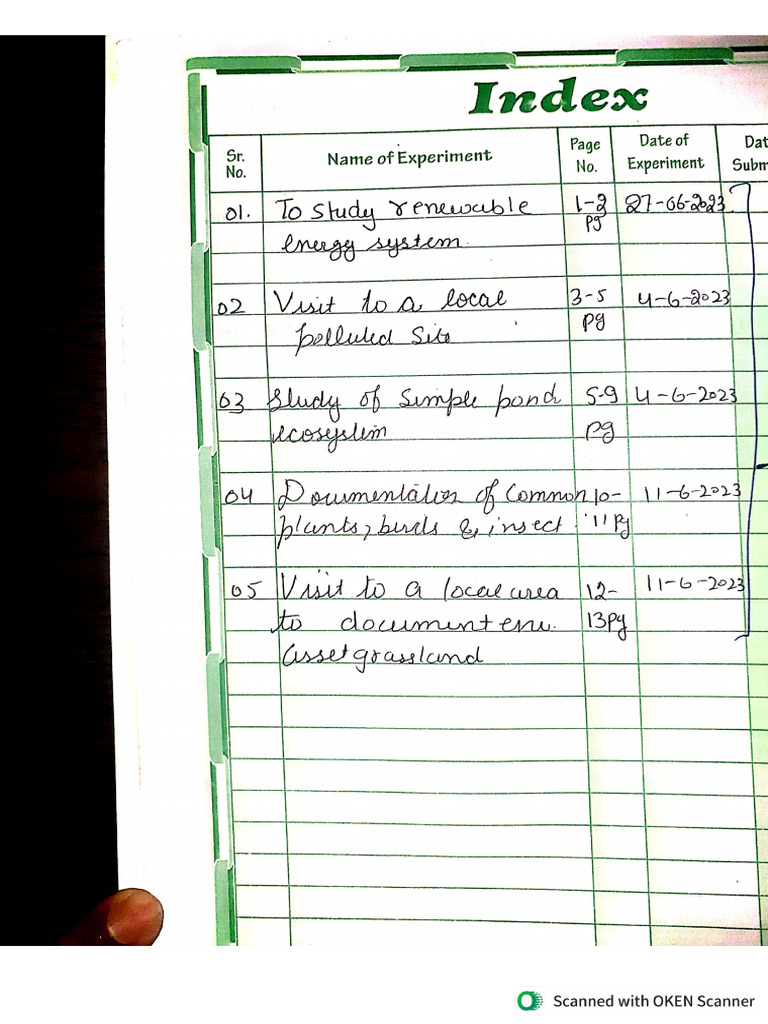 Index
Sr. No. Name of Experiment Page No. Date of Experiment Dat Subm
01. To study renewable 1-2 27-06-2023
energy system. pg
02 Visit to a local 3-5 4-6-2023
polluted Site pg
03 Study of simple pond 5-9 4-6-2023
ecosystem pg
04 Documentation of Common 10- 11-6-2023
plants, birds & insect 11 pg
05 Visit to a local area 12- 11-6-2023
to document env. 13pg
Asset grassland
Scanned with OKEN Scanner